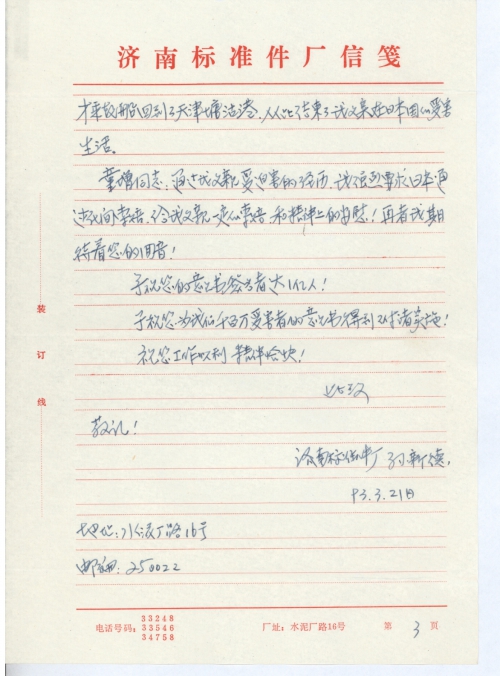 济南标准件厂信笺
才乘船回到了天津塘沽港,从此结束了我父亲在日本国的受害
生活。
童增同志:通过我父亲受迫害的经历,我强烈要求日本
政府索赔,给我父亲一定的索赔和精神上的安慰!再者我期
待着您的回音!
予祝您的意见书签名者大1亿人!
予祝您为我们千百万受害者的意见书得到
祝您工作顺利 精神愉快!
此致
敬礼!
济南标准件厂 孙新德.
93.3.21日
地址:水泥厂路16号
邮编:250022
装订线
电话号码:
33248
33546
34758
厂址:水泥厂路16号
第 3 页